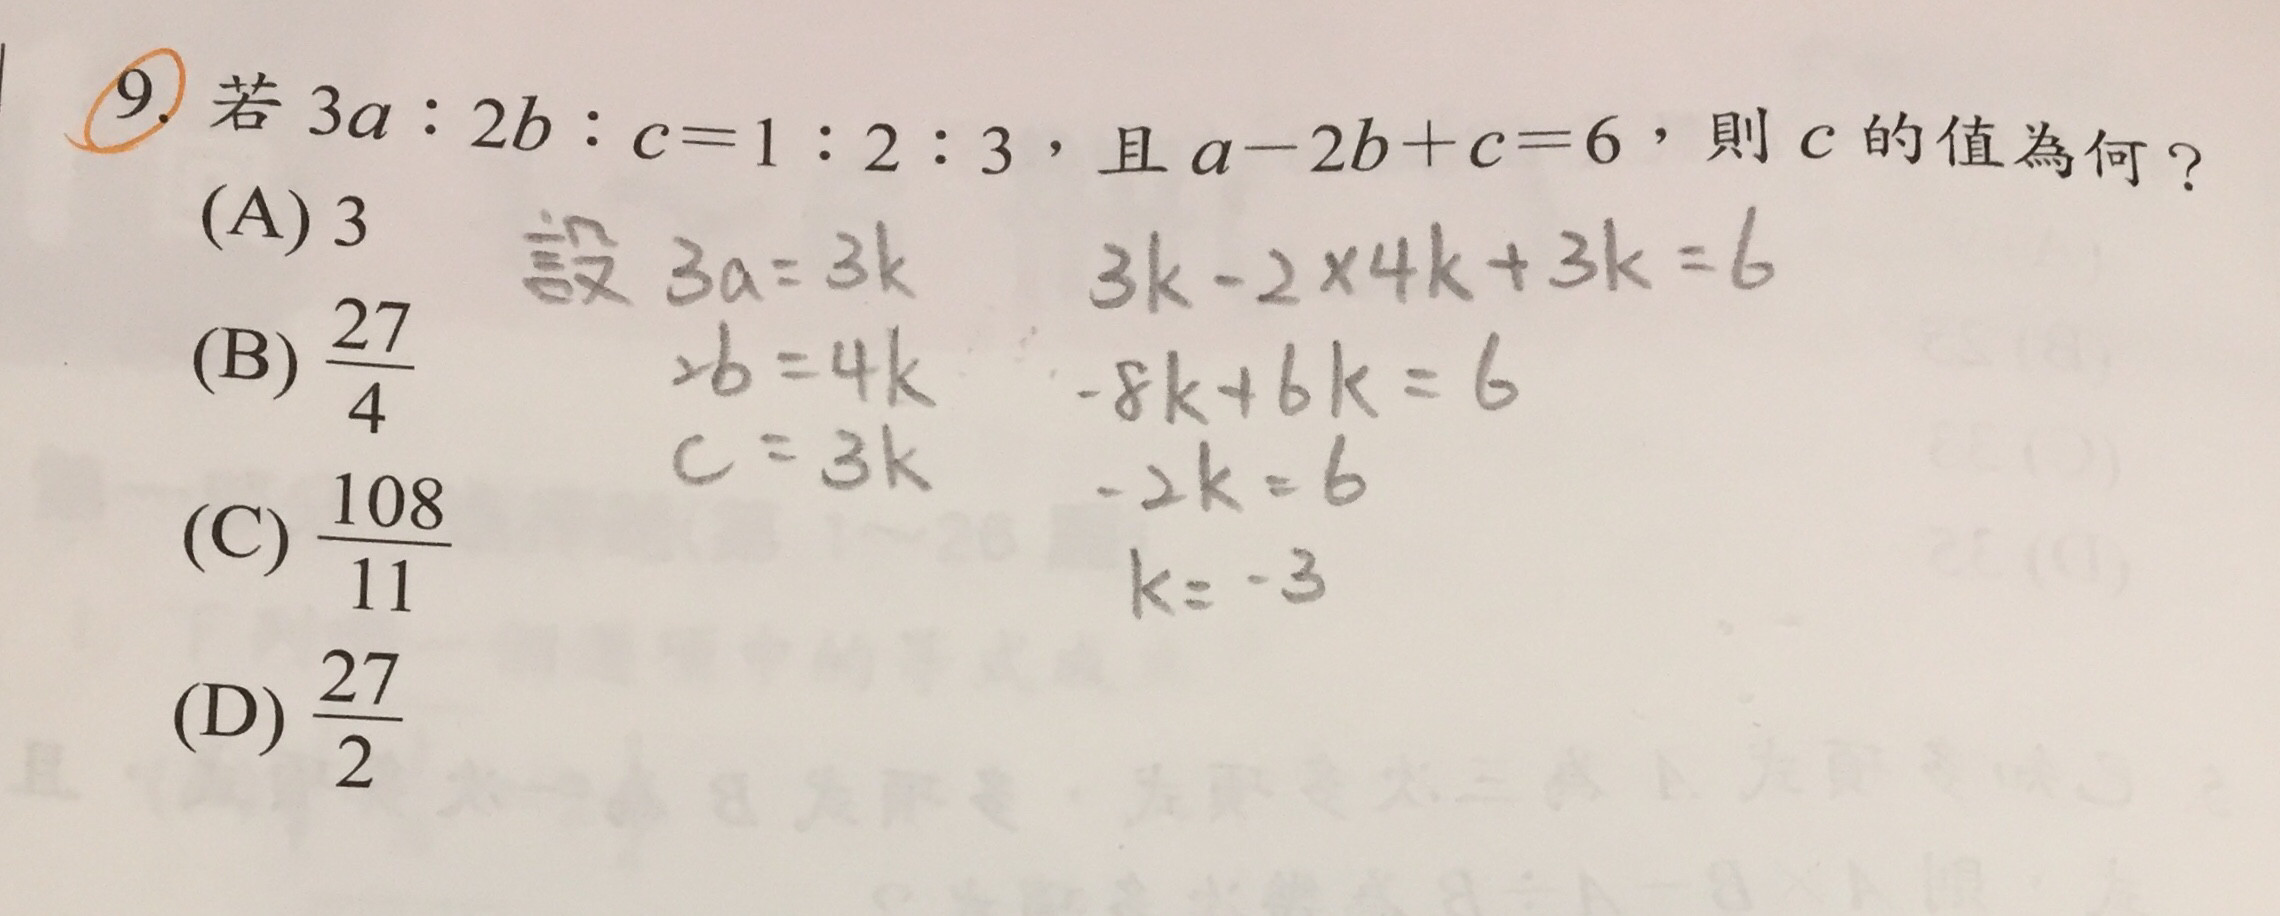 9. 若 3a：2b：c=1：2：3，且 a-2b+c=6，則 c 的值為何？
(A) 3
(B) 27/4
(C) 108/11
(D) 27/2
設 3a=3k
2b=4k
c=3k
3k-2×4k+3k=6
-8k+6k=6
-2k=6
k=-3